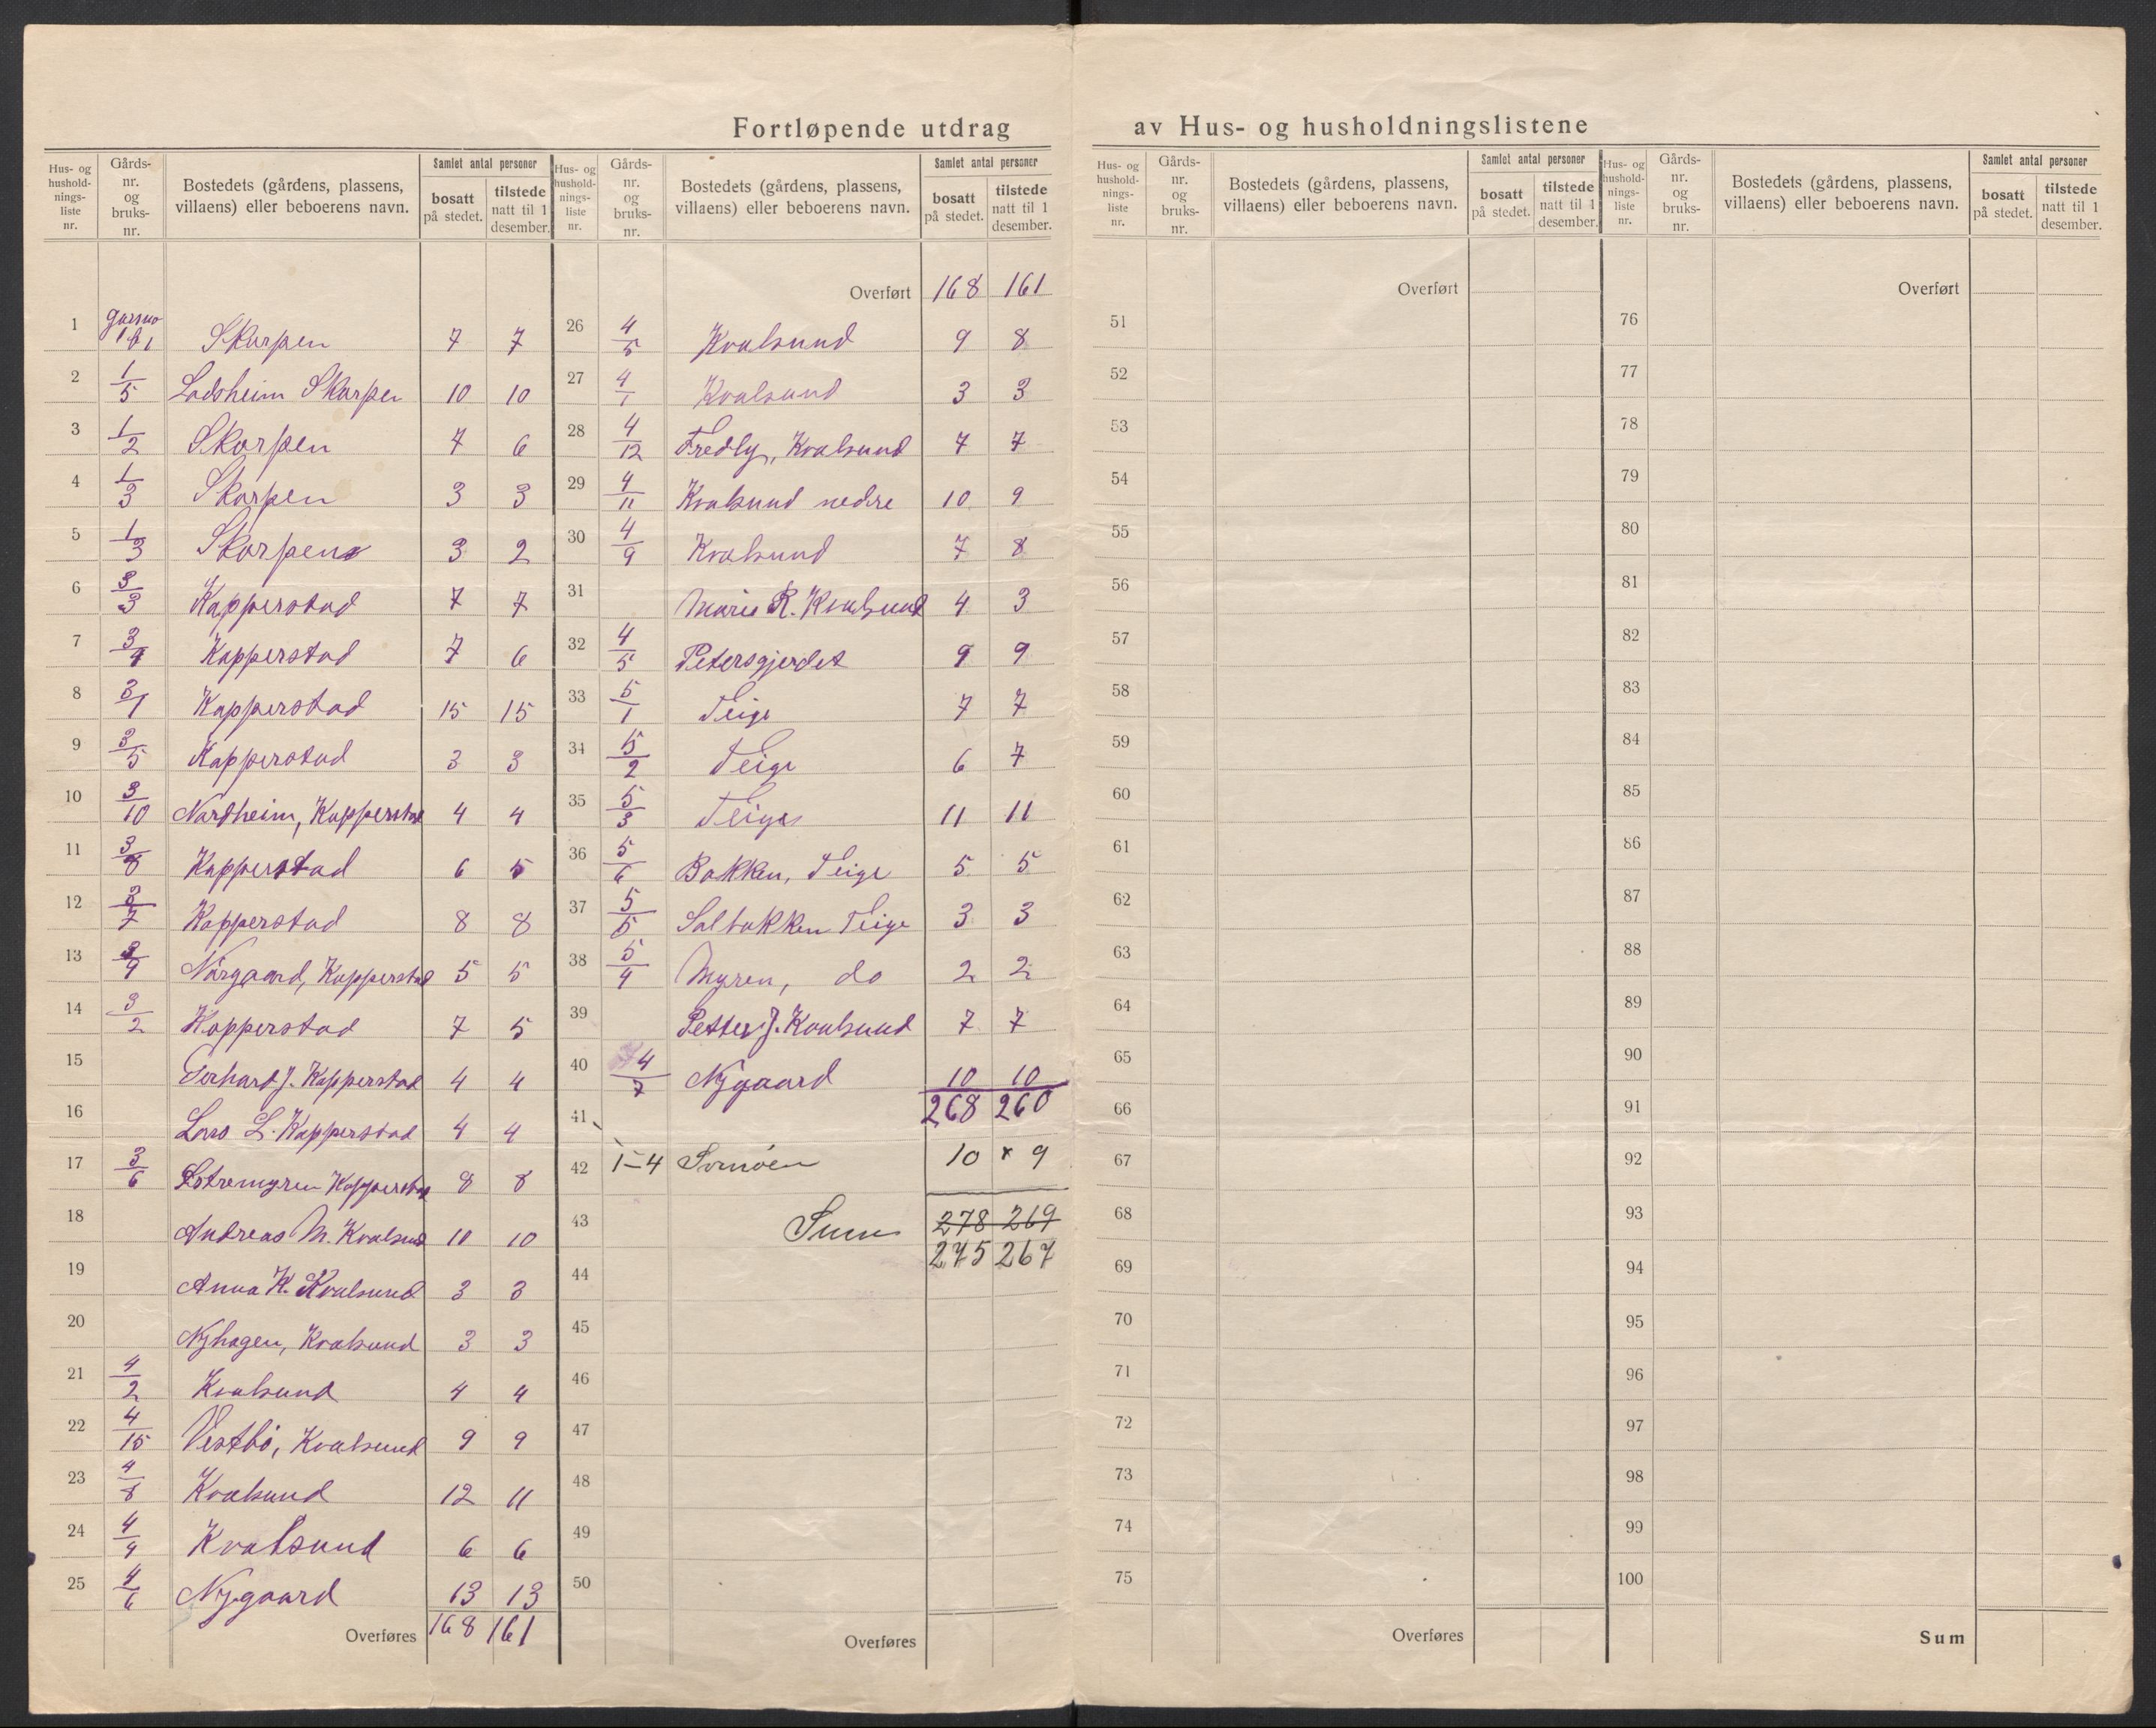 Fortløpende utdrag av Hus- og husholdningslistene
Hus- og hushold-nings-liste nr. | Gårds-nr. og bruks-nr. | Bostedets (gårdens, plassens, villaens) eller beboerens navn. | Samlet antal personer | bosatt på stedet. | tilstede natt til 1 desember.
1 Skarpen 7 7
2 1/5 Ladsheim Skarpen 10 10
3 1/2 Skarpen 7 6
4 1/3 Skarpen 3 3
5 1/3 Skarpen 3 2
6 3/3 Kapperstad 7 7
7 3/4 Kapperstad 7 6
8 3/1 Kapperstad 15 15
9 3/5 Kapperstad 3 3
10 3/10 Nordheim, Kapperstad 4 4
11 3/8 Kapperstad 6 5
12 3/7 Kapperstad 8 8
13 3/9 Nørgaard, Kapperstad 5 5
14 3/2 Kapperstad 7 5
15 Gerhard J. Kapperstad 4 4
16 Lars L. Kapperstad 4 4
17 3/6 Kapperstad 8 8
18 Andreas M. Kvalsund 10
19 Anna K. Kvalsund 3 3
20 Nyhagen, Kvalsund 3 3
21 4/2 Kvalsund 4 4
22 4/15 Vestbö, Kvalsund 9 9
23 4/8 Kvalsund 12 11
24 4/4 Kvalsund 6 6
25 4/6 Nygaard 13 13
Overføres 168 161
Hus- og hushold-nings-liste nr. | Gårds-nr. og bruks-nr. | Bostedets (gårdens, plassens, villaens) eller beboerens navn. | Samlet antal personer | bosatt på stedet. | tilstede natt til 1 desember.
Overført 168 161
26 4/5 Kvalsund 9 8
27 4/1 Kvalsund 3 3
28 4/12 Fredly, Kvalsund 7 7
29 4/11 Kvalsund nedre 10 9
30 4/9 Kvalsund 7 8
31 Marie R. Kvalsund 4 3
32 4/5 Petersgjerdet 9 9
33 5/1 Teige 7 7
34 5/2 Teige 6 7
35 5/3 Teige 11 11
36 5/6 Bakken, Teige 5 5
37 5/5 Solbakken Teige 3 3
38 5/4 Myren, do 2 2
39 Petter J. Kvalsund 7 7
40 4/7 Nygaard 10 10
41 268 260
42 1-4 10 x 9
43 Sum 278 269
275 267
44
45
46
47
48
49
50
Overføres
Hus- og hushold-nings-liste nr. | Gårds-nr. og bruks-nr. | Bostedets (gårdens, plassens, villaens) eller beboerens navn. | Samlet antal personer | bosatt på stedet. | tilstede natt til 1 desember.
Overført
51
52
53
54
55
56
57
58
59
60
61
62
63
64
65
66
67
68
69
70
71
72
73
74
75
Overføres
Hus- og hushold-nings-liste nr. | Gårds-nr. og bruks-nr. | Bostedets (gårdens, plassens, villaens) eller beboerens navn. | Samlet antal personer | bosatt på stedet. | tilstede natt til 1 desember.
Overført
76
77
78
79
80
81
82
83
84
85
86
87
88
89
90
91
92
93
94
95
96
97
98
99
100
Sum